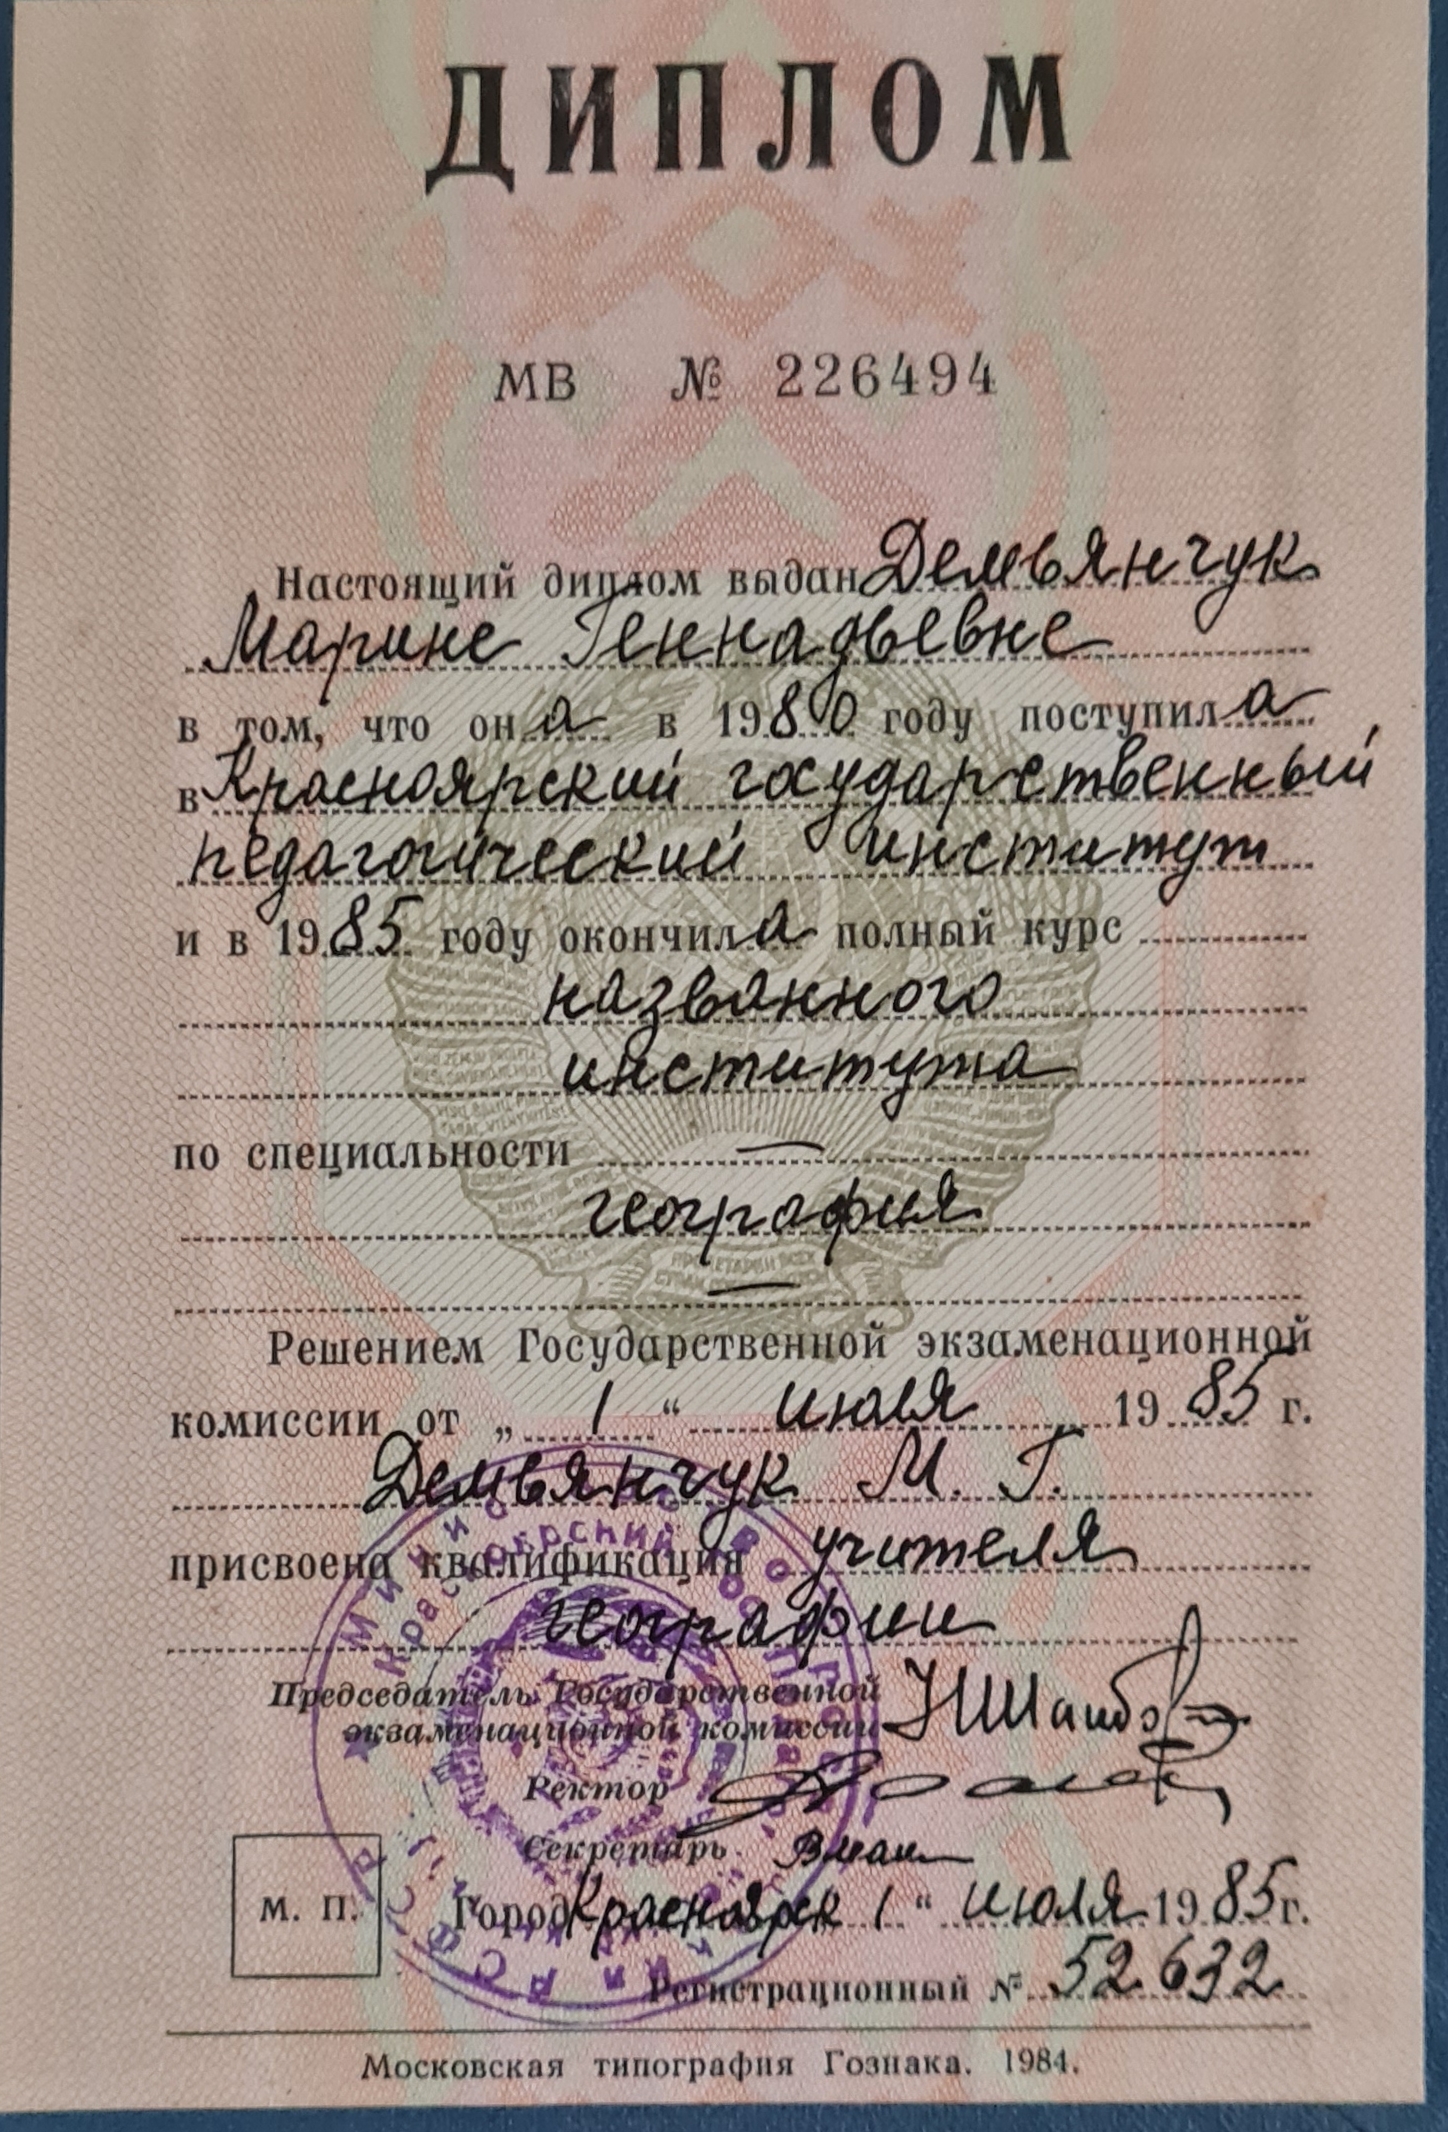 ДИПЛОМ
МВ № 226494
Настоящий диплом выдан Демьянчук
Марине Геннадьевне
в том, что она в 1980 году поступила
в Красноярский государственный
педагогический институт
и в 1985 году окончила полный курс
названного
института
по специальности —
география
—
Решением Государственной экзаменационной
комиссии от „ 1 “ июля 1985 г.
Демьянчук М. Г.
присвоена квалификация учителя
географии
Председатель Государственной
экзаменационной комиссии
Ректор
Секретарь
М. П. Город Красноярск 1 “ июля 1985 г.
Регистрационный № 52632
Московская типография Гознака. 1984.